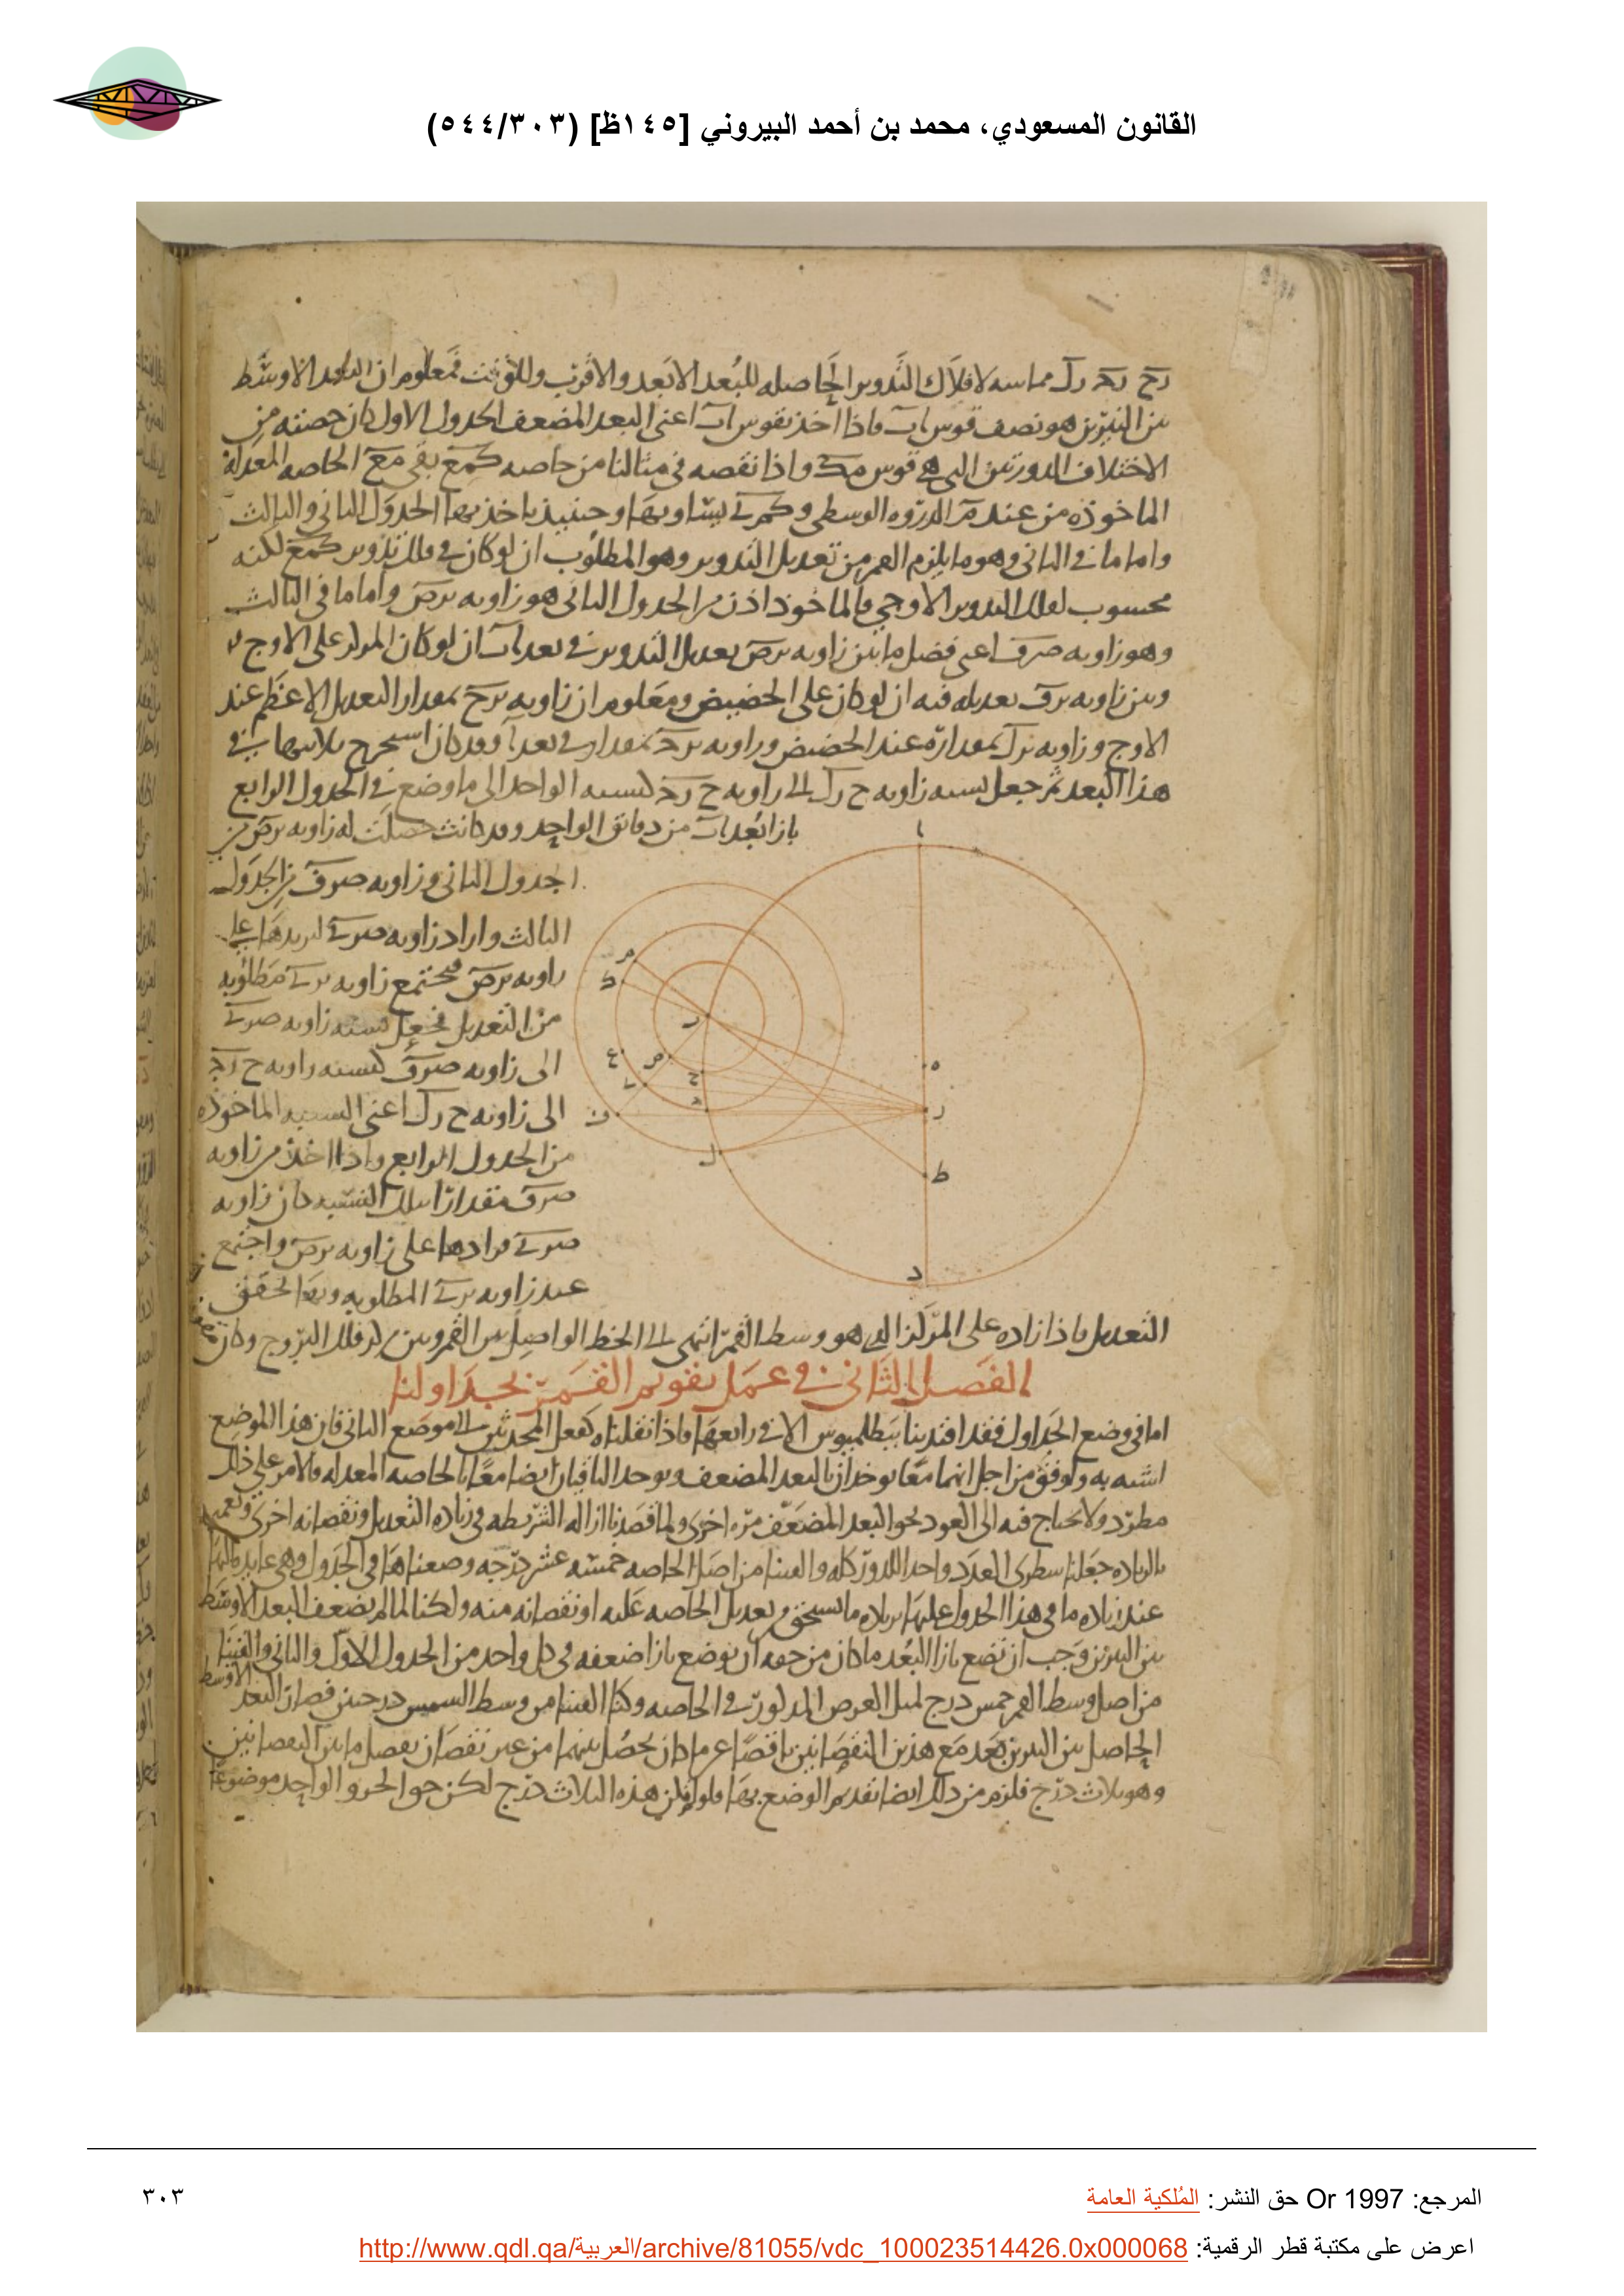 القانون المسعودي، محمد بن أحمد البيروني [١٤٥ظ] (٥٤٤/٣٠٣)
رح رد رك مماسه لافلاك التدوير الحاصله للبعد الابعد والاقرب وللوقت فمعلوم ان البعد الاوسط
بين النيرين هو نصف قوس اب فاذا اخذ بقوس اب اعنى البعد المضعف الجدول الاول كان حصته من
الاختلاف الدورتين التى هى قوس مك واذا نقصه فى مثالنا من خاصه كمع بقى مع الخاصه المعدله
الماخوذه من عند م الذروه الوسطى و يساويها وحينيذ ياخذ بها الجدول الثانى والثالث
واما ما فى الثانى وهو ما يلزم القمر من تعديل التدوير وهو المطلوب ان لو كان فى فلك تدوير كمع لكنه
محسوب لفلك التدوير الاوجى فالماخوذ اذن من الجدول الثانى هو زاويه برص واما ما فى الثالث
وهو زاويه صرف اعنى فضل ما بين زاويه برص تعديل التدوير فى بعد اب ان لو كان المركز على الاوج
وبين زاويه برف تعديله فيه ان لو كان على الحضيض ومعلوم ان زاويه برح بمقدار التعديل الاعظم عند
الاوج وزاويه برك بمقداره عند الحضيض وزاويه برد بمقداره فى بعد اب وقد كان استخرج ثلاثتها فى
هذا البعد ثم جعل نسبه زاويه ح رك الى زاويه ح رد كنسبه الواحد الى ما وضع فى الجدول الرابع
بازا بعد اب من دقائق الواحد وقد كانت حصلت له زاويه برص من
الجدول الثانى وزاويه صرف من الجدول
الثالث واراد زاويه صرى ليزيدها على
زاويه برص فيجتمع زاويه برى مطلوبه
من التعديل فجعل نسبه زاويه صرى
الى زاويه صرف كنسبه زاويه ح رد
الى زاويه ح رك اعنى النسبه الماخوذه
من الجدول الرابع واذا اخذ من زاويه
صرف مقدارا بتلك النسبه كان زاويه
صرى فزادها على زاويه برص واجتمع
عنده زاويه برى المطلوبه وبها تحقق
التعديل فاذا زاده على المركز الذى هو وسط القمر انتهى الى الخط الواصل بين القمر وبين مركز فلك البروج وكان
الفصل الثانى فى عمل تقويم القمر بجداولنا
اما فى وضع الجداول فقد اقتدينا ببطلميوس الا فى رابعها فاذا نقلناه كفعل المحدثين الى موضع الثانى فان هذا الموضع
اشبه به واوفق من اجل انهما معا يوخذان بالبعد المضعف ويوخذ الباقيان ايضا معا بالخاصه المعدله والامر على ذلك
مطرد ولا يحتاج فيه الى العود نحو البعد المضعف مره اخرى ولما قصدنا ازاله الشريطه فى زياده التعديل ونقصانه اخرى وتعميمه
بالزياده جعلنا سطرى العدد واحدا للدور كله والقينا من اصل الخاصه خمسه عشر درجه وضعناها فى الجدول وهى عايده اليها
عند زياده ما فى هذا الجدول عليها بزياده ما يستحق من تعديل الخاصه عليه او نقصانه منه ولكنا لما لم نضعف البعد الاوسط
بين النيرين وجب ان نضع بازا البعد ما كان من حقه ان يوضع بازا ضعفه فى كل واحد من الجدول الاول والثانى والقينا
من اصل وسط القمر خمس درج لمثل العرض المذكور فى الخاصه وكنا القينا من وسط الشمس درجتين فصار البعد الاوسط
الحاصل بين النيرين بعد مع هذين النقصانين ناقصا عما كان يحصل بينهما من غير نقصان بفضل ما بين النقصانين
وهو ثلاث درج فلزم من ذلك ايضا تقديم الوضع بها فلو لم تكن هذه الثلاث درج لكن حق الجزو الواحد موضوعا
ا
م
ك
ر
ع
ص
ح
ى
د
ف
ل
ه
ر
ط
د
المرجع: Or 1997 حق النشر: المُلكية العامة
٣٠٣
اعرض على مكتبة قطر الرقمية: http://www.qdl.qa/العربية/archive/81055/vdc_100023514426.0x000068